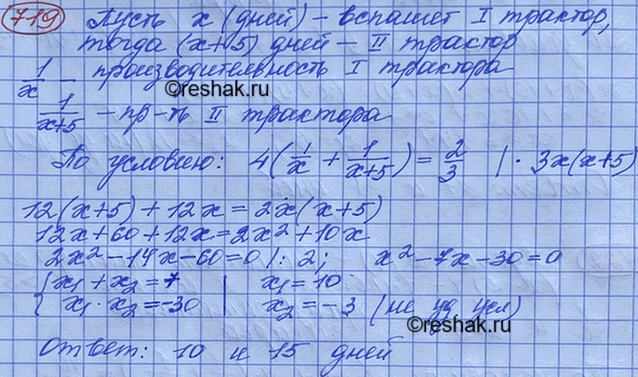 719 Пусть x (дней) – вспашет I трактор,
тогда (x+5) дней – II трактор
1/x – производительность I трактора
1/(x+5) – пр-ть II трактора
По условию: 4(1/x + 1/(x+5)) = 2/3 | · 3x(x+5)
12(x+5) + 12x = 2x(x+5)
12x + 60 + 12x = 2x² + 10x
2x² – 14x – 60 = 0 |: 2; x² – 7x – 30 = 0
{ x₁ + x₂ = 7 | x₁ = 10
x₁ · x₂ = –30 | x₂ = –3 (не уд. усл)
Ответ: 10 и 15 дней
©reshak.ru
©reshak.ru
©reshak.ru